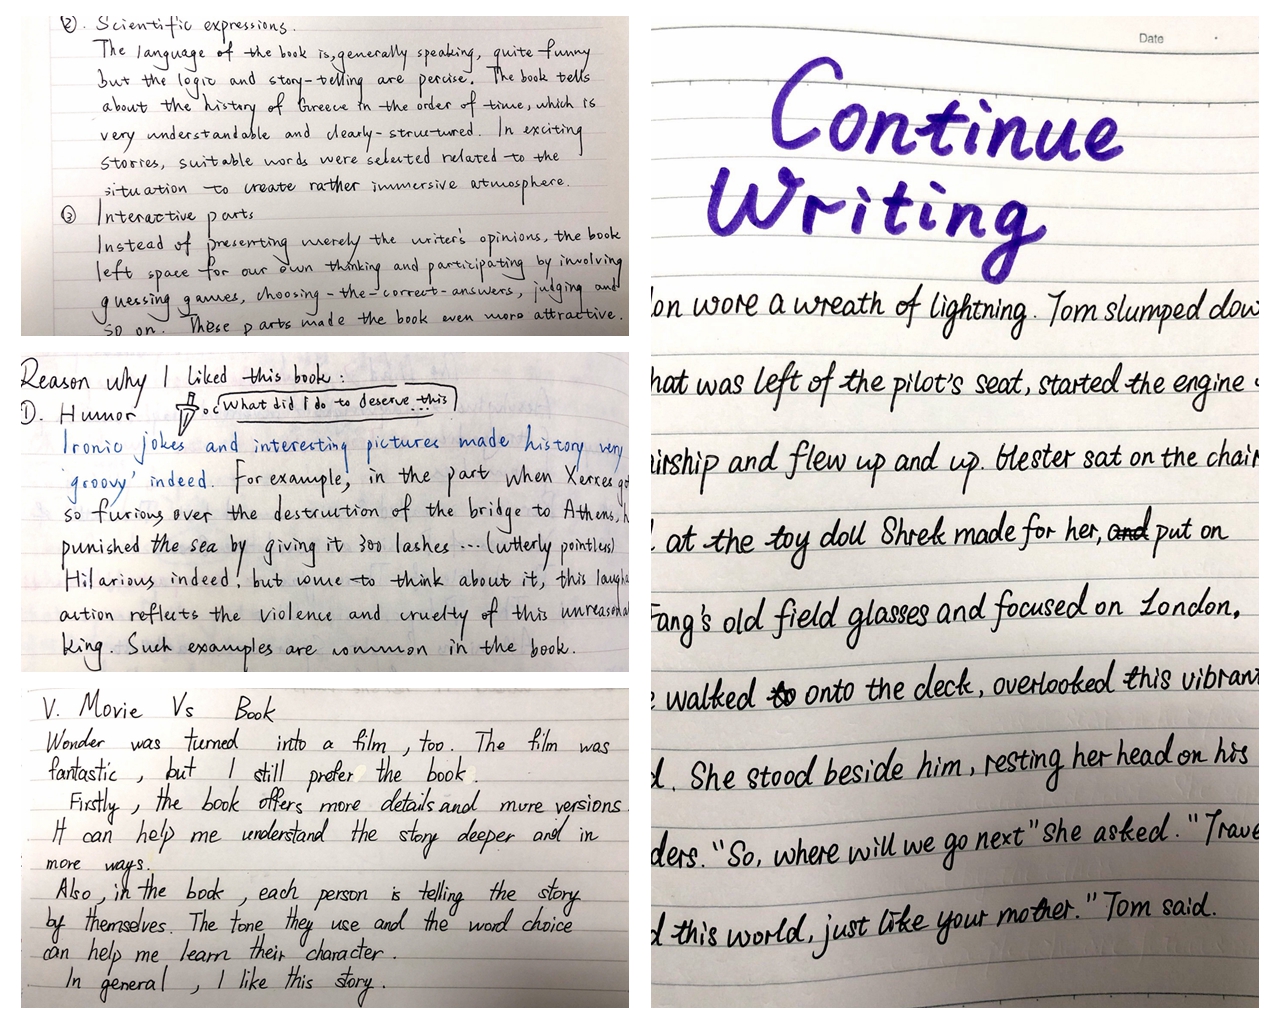 ②. Scientific expressions.
The language of the book is, generally speaking, quite funny
but the logic and story-telling are percise. The book tells
about the history of Greece in the order of time, which is
very understandable and clearly-structured. In exciting
stories, suitable words were selected related to the
situation to create rather immersive atmosphere.
③ Interactive parts
Instead of presenting merely the writer's opinions, the book
left space for our own thinking and participating by involving
guessing games, choosing-the-correct-answers, judging and
so on. These parts made the book even more attractive.
Reason why I liked this book:
①. Humor
What did I do to deserve this...
Ironic jokes and interesting pictures made history very
'groovy' indeed. For example, in the part when Xerxes
so furious over the destruction of the bridge to Athens,
punished the sea by giving it 300 lashes ... (utterly pointless)
Hilarious indeed! but come to think about it, this
action reflects the violence and cruelty of this
king. Such examples are common in the book.
V. Movie Vs Book
Wonder was turned into a film, too. The film was
fantastic, but I still prefer the book.
Firstly, the book offers more details and more versions.
It can help me understand the story deeper and in
more ways.
Also, in the book, each person is telling the story
by themselves. The tone they use and the word choice
can help me learn their character.
In general, I like this story.
Date
Continue
Writing
on wore a wreath of lightning. Tom slumped dow
hat was left of the pilot's seat, started the engine
irship and flew up and up. Hester sat on the chair
at the toy doll Shrek made for her, and put on
Fang's old field glasses and focused on London,
walked to onto the deck, overlooked this vibran
d. She stood beside him, resting her head on his
ders. "So, where will we go next" she asked. "Trave
d this world, just like your mother." Tom said.